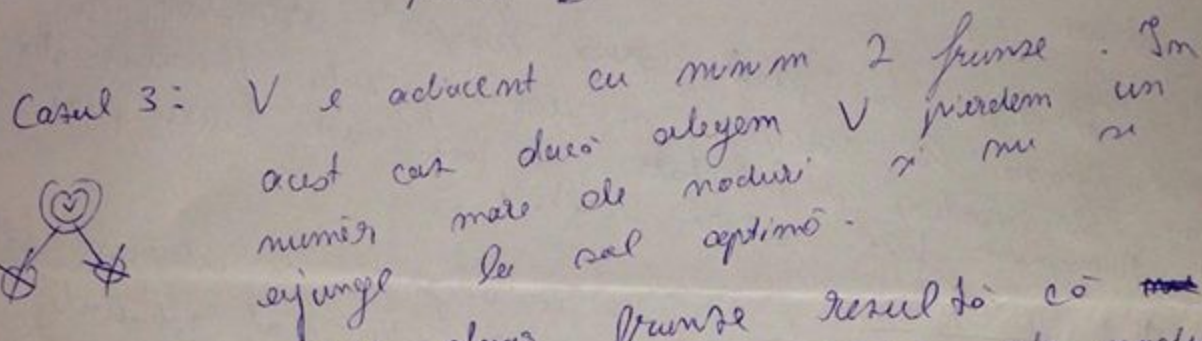 Cazul 3: V e adiacent cu minim 2 frunze. În
acest caz dacă alegem V pierdem un
număr mare de noduri și nu se
ajunge la sol optimă.
frunze rezultă că